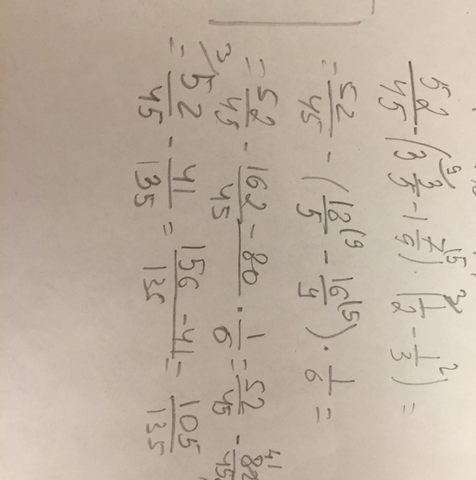 52/45 - (3 3/5 ⁹ - 1 7/9 ⁵) · (1/2 ³ - 1/3 ²) =
= 52/45 - (18/5 ⁹ - 16/9 ⁵) · 1/6 =
= 52/45 - 162-80/45 · 1/6 = 52/45 - 82 41/45
= 52/45 ³ - 41/135 = 156-41/135 = 105/135